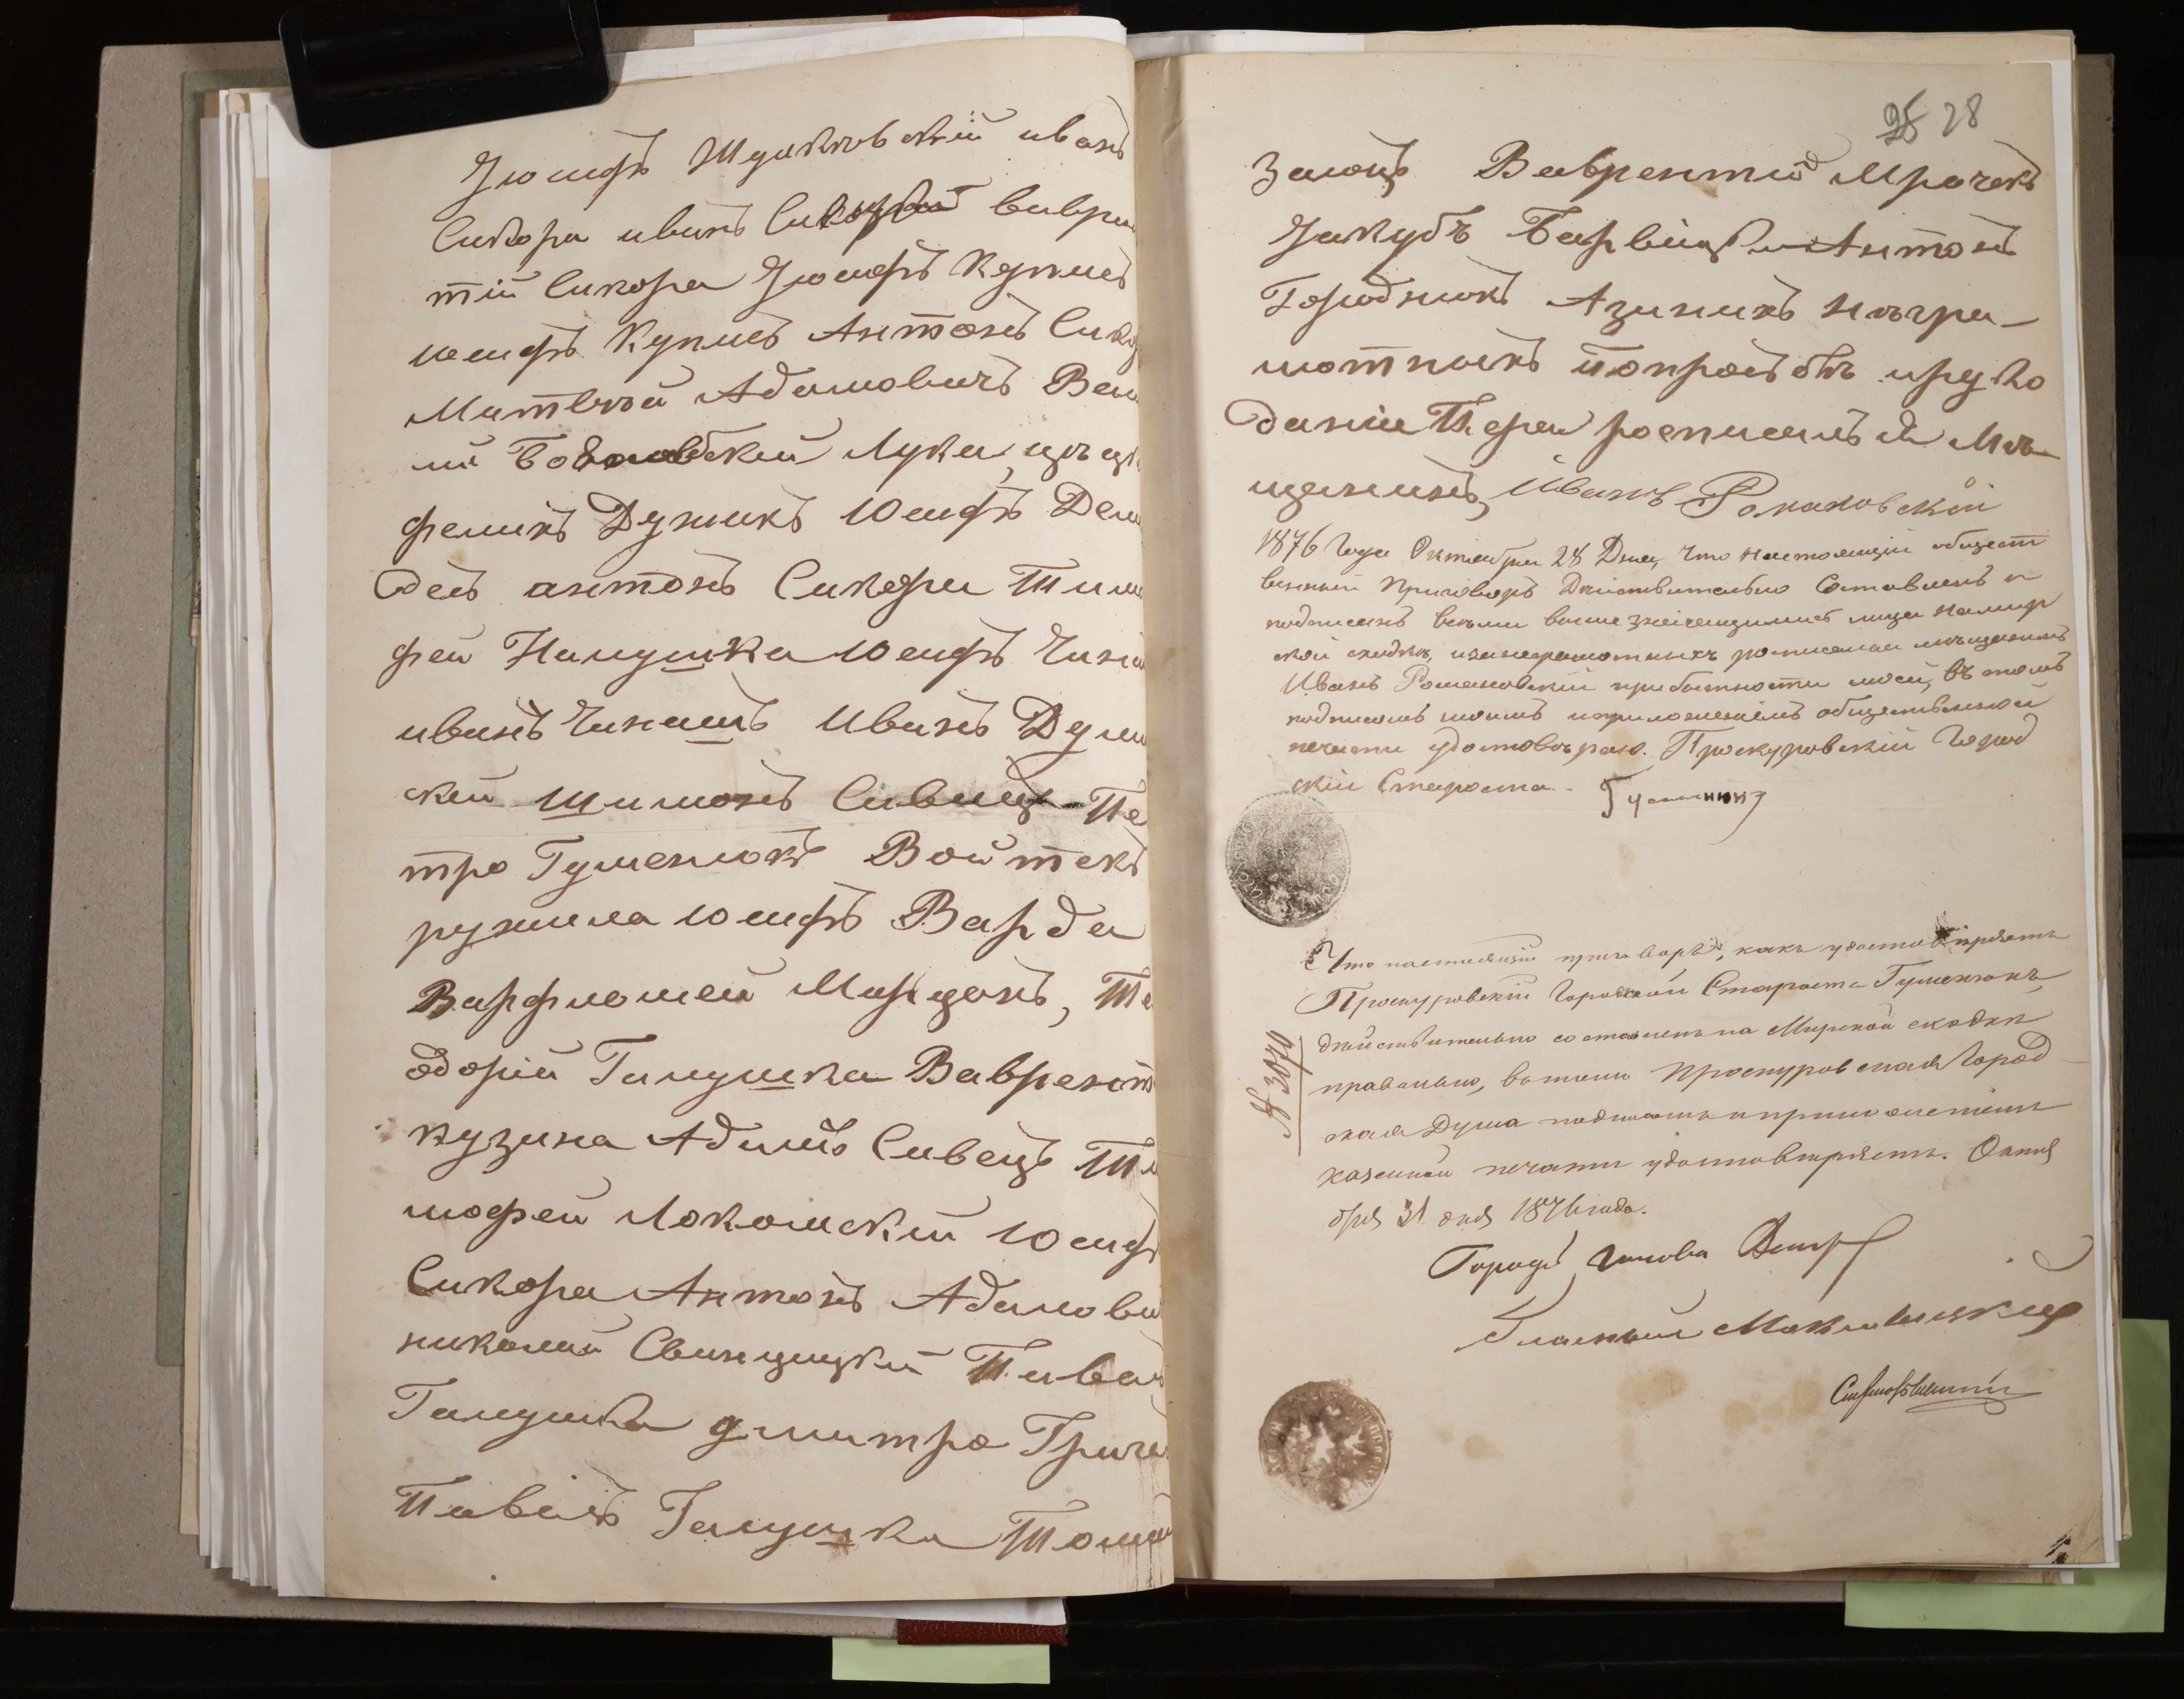 Зіосифъ Шутковскій иванъ
Сикора иванъ Сикорскій ваврен
тій Сикора Зіосифъ Купецъ
іосифъ Купецъ Антонъ Сико
Матвѣй Адамовичъ Васи
лій Лука
феликъ Дуникъ Юсифъ Дем
антонъ Сикора Тимо
фей Налушка Юсифъ Чина
иванъ Чинашъ Иванъ Дум
скій Шимонъ Сивецъ Пе
тро Гуменюкъ Войтекъ
ружила Юсифъ Варда
Варфломей Марцонъ, Те
одорій Галушка Ваврент
кузина Адамъ Сивецъ Ти
мофей Локомскій Юсиф
Сикора Антонъ Адамови
николай Свинцицкій Павел
Галушка дмитро Гриче
Павелъ Галушка Тома
28
Заіонцъ Ваврентій Мрочекъ
Якубъ Барвіцкі Антонъ
Городнюкъ Азанихъ нѣгра-
мотныхъ попрозьбѣ ируко
данію Пера росписался Мѣ
щанинъ Иванъ Романовской
1876 Года Октября 28 Дня, Что настоящій общест
венный Приговоръ Дѣйствительно Составленъ и
подписанъ всѣми выше значащимися лица намир
ской сходкѣ, изанеграмотныхъ росписался мѣщанинъ
Иванъ Романовскій прибытности моей, въ томъ
подписомъ моимъ иприложеніемъ общественной
печати удостовѣраю. Проскуровскій Город
скій Староста. Гуменнюкъ
Что настоящій приговоръ, какъ удостовѣряетъ
Проскуровскій Городской Староста Гуменюкъ,
дѣйствительно составленъ на Мирской сходкѣ
правильно, втомъ Проскуровская Город
ская Дума подписомъ и приложеніемъ
казенной печати удостовѣряетъ. Октя
бря 31 дня 1876 года.
№ 3070
Городъ Голова
Гласный